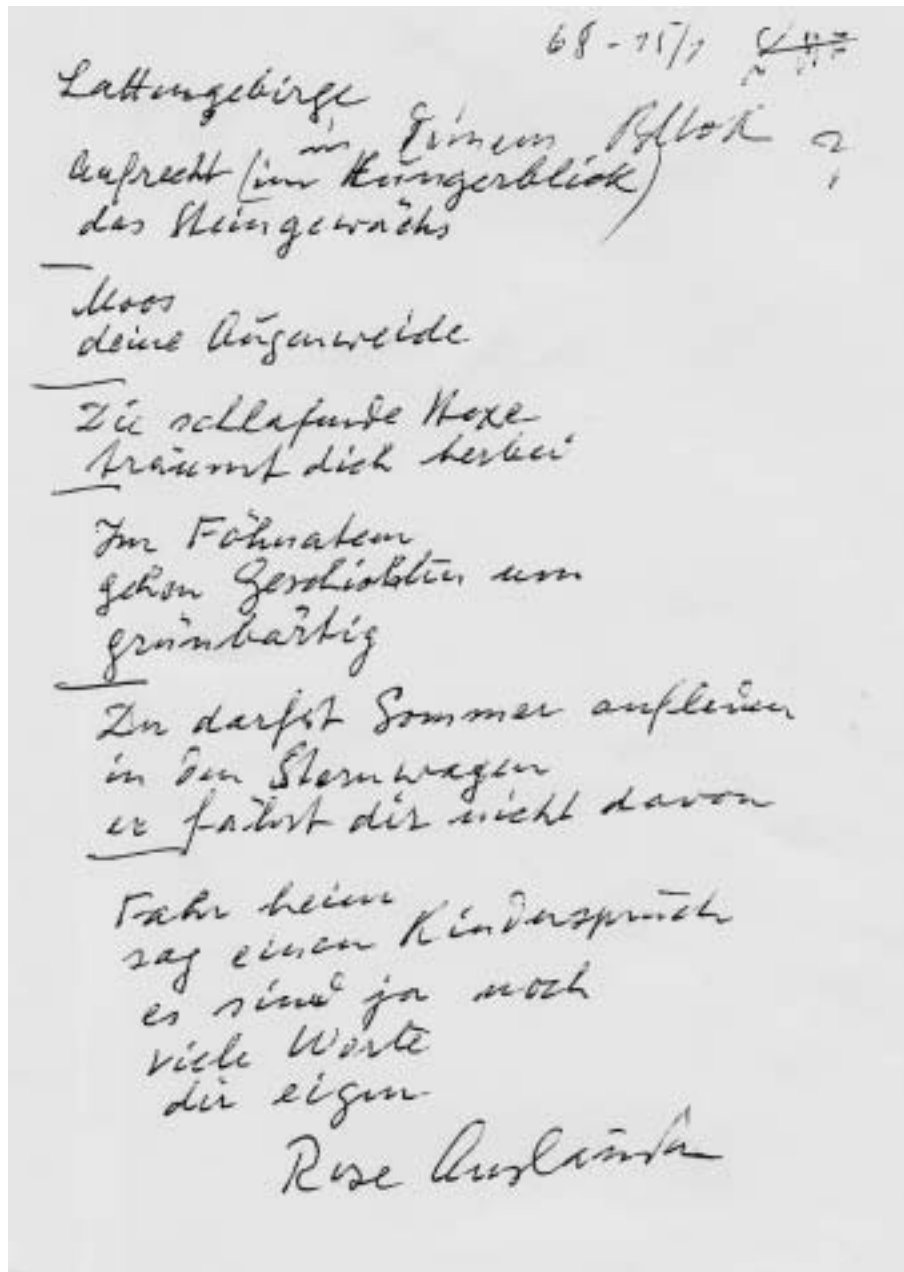 68-15/1
Lattengebirge
in Deinem Blick ?
Aufrecht (im Hungerblick)
das Steingewächs
Moos
deine Augenweide
Die schlafende Hexe
träumt dich herbei
Im Föhnatem
gehen Geschichten um
grünbärtig
Du darfst Sommer aufladen
in den Sternwagen
er fährt dir nicht davon
Fahr heim
sag einen Kinderspruch
es sind ja noch
viele Worte
dir eigen
Rose Ausländer